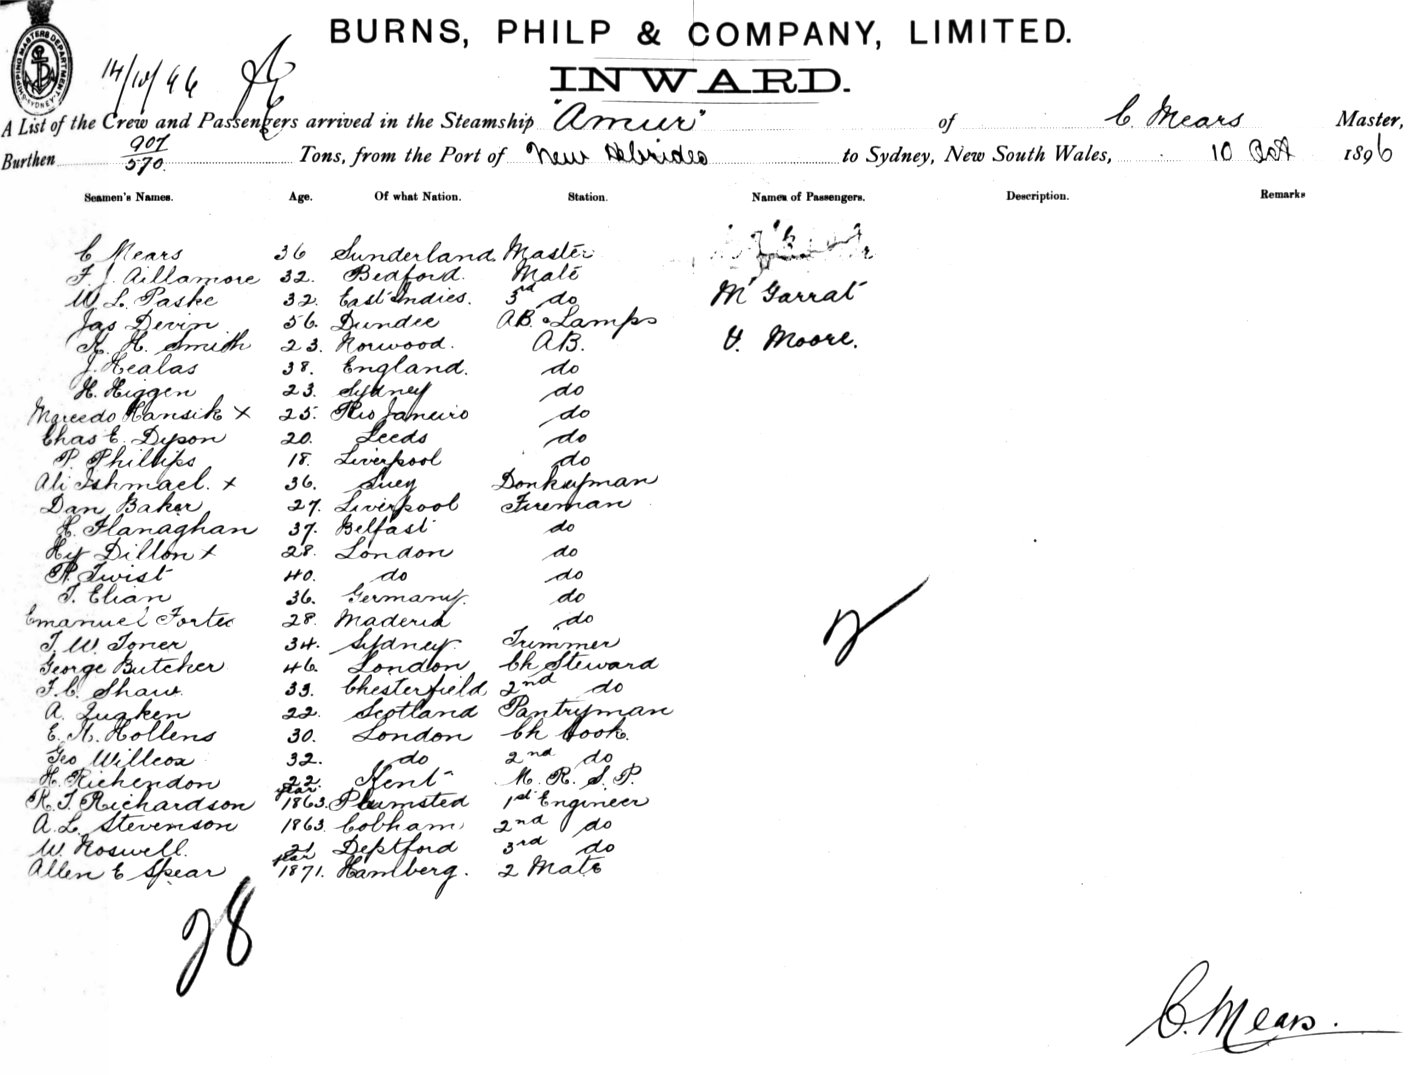 BURNS, PHILP & COMPANY, LIMITED.
INWARD.
SHIPPING MASTERS DEPARTMENT SYDNEY
14/10/96
A List of the Crew and Passengers arrived in the Steamship "Amur" of C. Mears Master,
Burthen 907/570 Tons, from the Port of New Hebrides to Sydney, New South Wales, 10 Oct 1896
Seamen's Names. Age. Of what Nation. Station. Names of Passengers. Description. Remarks
C Mears 36 Sunderland Master
F. J. Aillamore 32. Bedford. Mate
W. L. Paske 32. East Indies. 3rd do Mr Garrat
Jas Devin 56. Dundee AB. & Lamps
K. H. Smith 23. Norwood. AB. V. Moore.
J. Healas 38. England. do
H. Higgen 23. Sydney do
Marcedo Hansik x 25. Rio Janeiro do
Chas E. Dyson 20. Leeds do
P. Phillips 18. Liverpool do
Ali Ishmael. x 36. Suez Donkeyman
Dan Baker 27. Liverpool Fireman
H. Flanaghan 37. Belfast do
Hy Dillon x 28. London do
R. Twist 40. do do
T. Elian 36. Germany. do
Emanuel Fortes 28. Maderia do
T. W. Toner 34. Sydney. Trimmer
George Butcher 46. London Ch Steward
F. C. Shaw 33. Chesterfield 2nd do
A. Quaken 22. Scotland Pantryman
E. A. Hollens 30. London Ch Cook.
Geo Willcox 32. do 2nd do
H. Richendon 22 Kent M. R. S. P.
R. T. Richardson year 1863. Plumsted 1st Engineer
A. L. Stevenson 1863. Cobham 2nd do
W. Roswell. 21 Deptford 3rd do
Allen E Spear year 1871. Hamberg. 2 Mate
2
28
C. Mears.